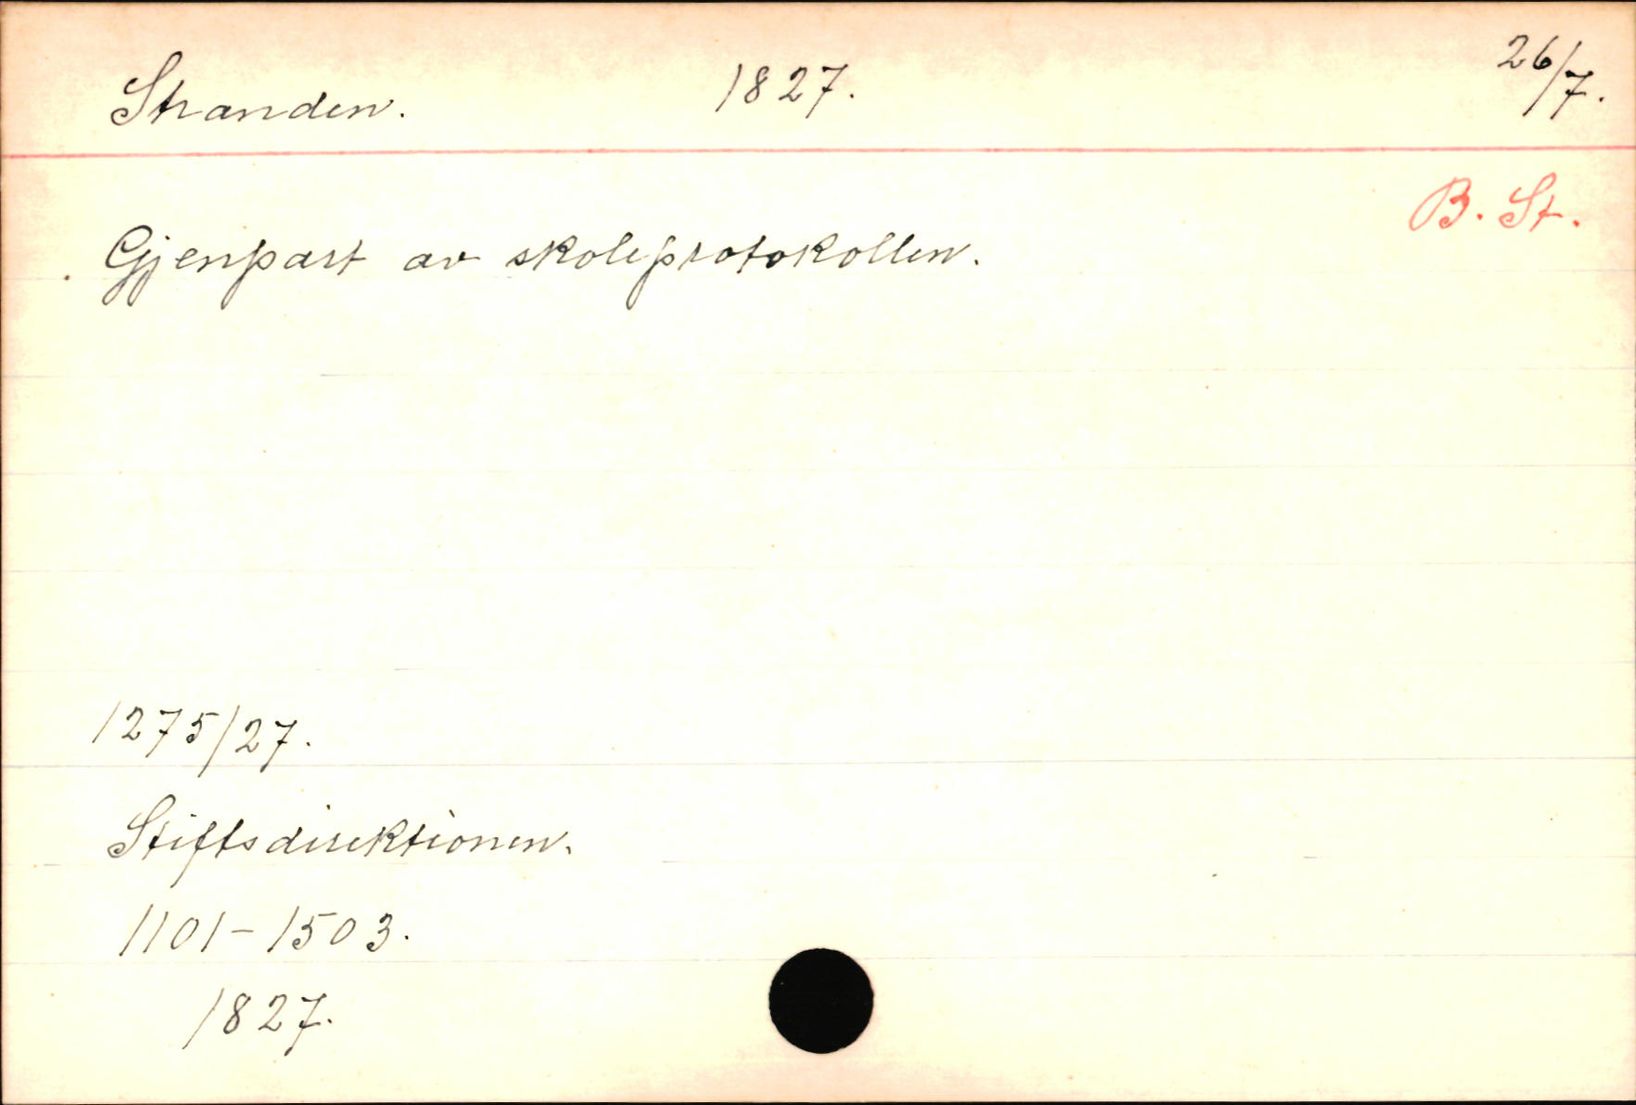 Stranden. 1827. 26/7.
B. St.
Gjenpart av skoleprotokollen.
1275/27.
Stiftsdirektionen.
1101-1503.
1827.